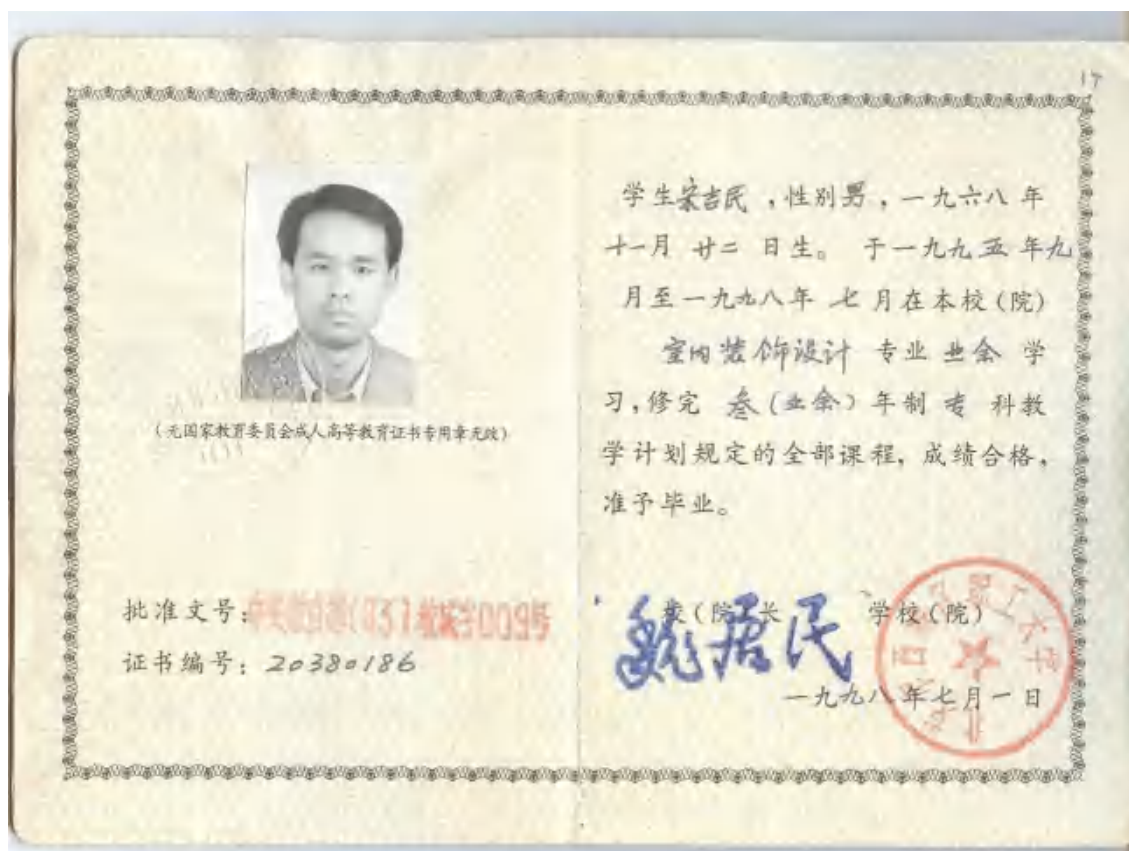 17
(无国家教育委员会成人高等教育证书专用章无效)
批准文号:
009号
证书编号: 20380186
学生宋吉民,性别男,一九六八年
十一月 廿二 日生。 于一九九五年九
月至一九九八年 七月在本校(院)
室内装饰设计 专业 业余 学
习,修完 叁(业余)年制 专 科教
学计划规定的全部课程,成绩合格,
准予毕业。
(院)长 学校(院)
一九九八年七月一日